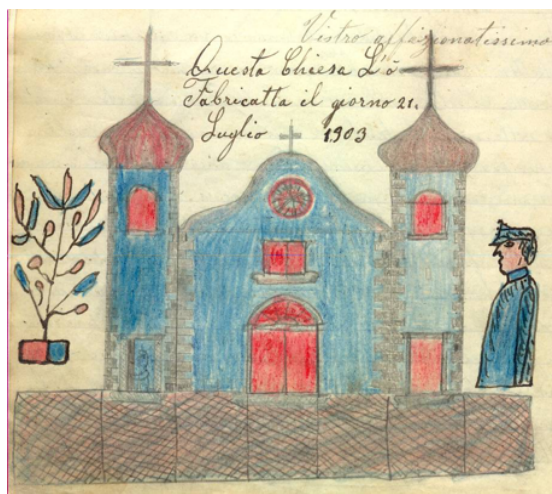 Vistro affezionatissimo
Questa Chiesa L'ò
Fabricatta il giorno 21.
Luglio 1903